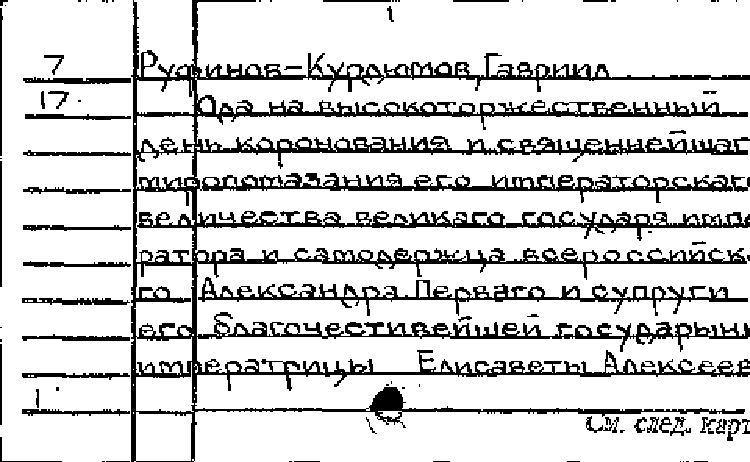 1
7 Руфинов-Курдюмов, Гавриил
17. Ода на высокоторжественный
день коронования и священнейшаг
миропомазания его императорскаг
величества великаго государя импе
ратора и самодержца всероссийск
го Александра Перваго и супруги
его благочестивейшей государын
императрицы Елисаветы Алексеев
1
См. след. карт